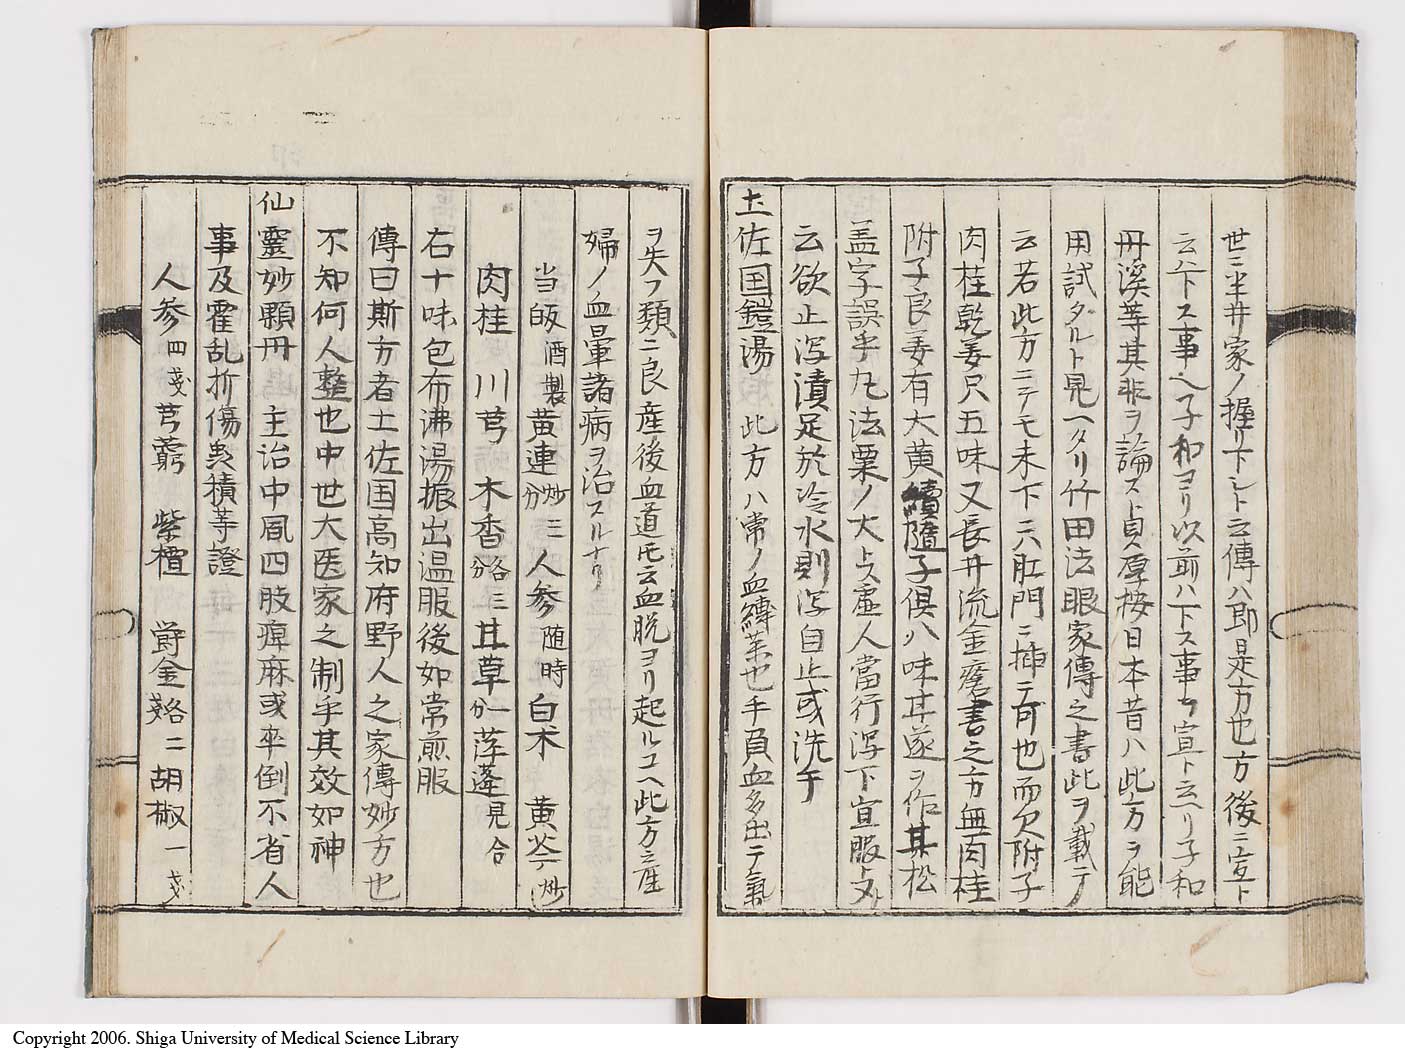 世ニ半井家ノ握リ下シト云傳ハ即是方也方後ニ宣ト
云今下ス事ヘ子和ヨリ以前ハ下ス事ヲ宣ト云ヘリ子和
丹溪等其非ヲ論ス卜貞厚按日本昔ハ此方ヲ能
用試タルト見ヘタリ竹田法眼家傳之書此ヲ載テ
云若此方ニテモ未下ニ六肛門ニ挿テ可也而欠附子
肉桂乾姜只五味又長井流金瘡書之方無肉桂
附子良姜有大黄續隨子倶八味甘遂ヲ作其松
盖字誤乎丸法粟ノ大トス虚人當行瀉下宣服ト又
云欲止瀉漬足於冷水則瀉自止或洗手
土佐国鎧湯 此方ハ常ノ血縛薬也手負血多出テ氣
ヲ失フ類ニ良産後血道モ云血脱ヨリ起ルユヘ此方ニ産
婦ノ血暈諸病ヲ治スルナリ
当皈 酒製 黄連 炒三分 人参 随時 白术 黄芩 炒
肉桂 川芎 木香 各三分 甘草 一分 萍蓬 見合
右十味包布沸湯振出温服後如常煎服
傳曰斯方者土佐国高知府野人之家傳妙方也
不知何人整也中世大医家之制乎其效如神
仙靈妙顆丹 主治中風四肢痺麻或卒倒不省人
事及霍乱折傷曳積等證
人参 四戔 芎藭 紫檀 欝金 各二戔 胡椒 一戔
Copyright 2006. Shiga University of Medical Science Library